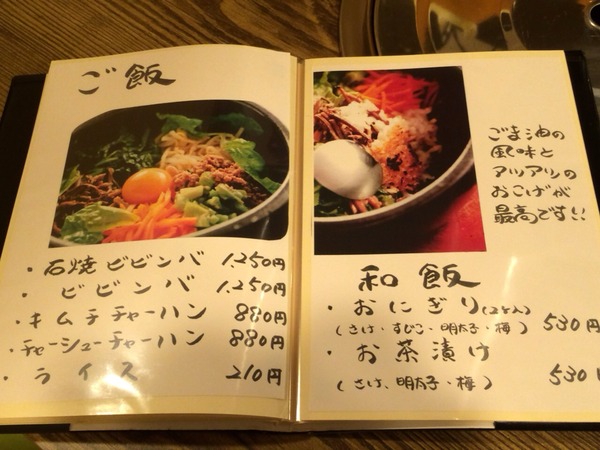 ご飯
・石焼ビビンバ 1,250円
・ビビンバ 1,250円
・キムチチャーハン 880円
・チャーシューチャーハン 880円
・ライス 210円
ごま油の
風味と
アツアツの
おこげが
最高です!!
和飯
・おにぎり(2ケ入) 530円
(さけ・すじこ・明太子・梅)
・お茶漬け 530円
(さけ、明太子・梅)